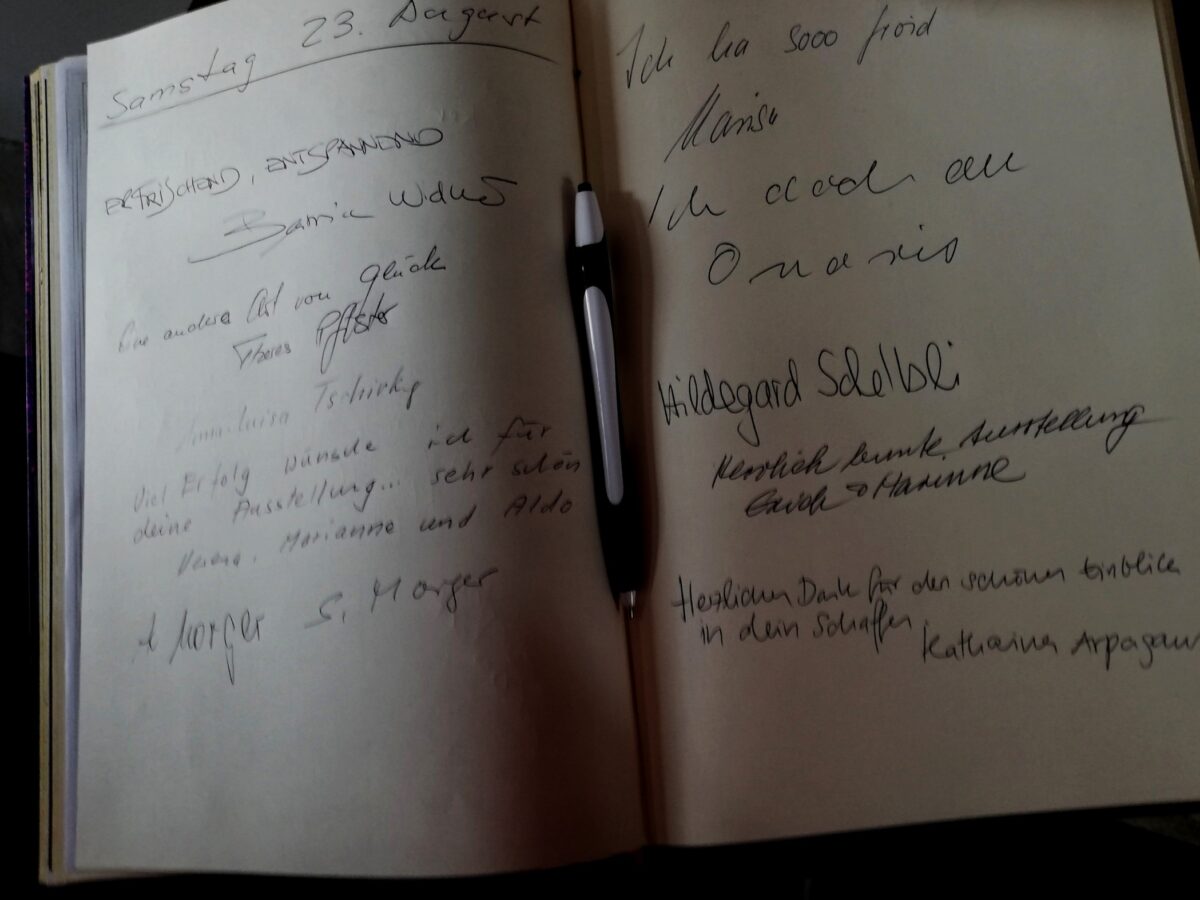 Samstag 23. August
ERFRISCHEND, ENTSPANNEND
Eine andere Art von Glück
Theres Pfister
Tschirky
Viel Erfolg wünsche ich für
deine Ausstellung... sehr schön
Verena, Marianne und Aldo
Morger S. Morger
Ich ha sooo froid
Ich auch
Hildegard Schelbli
Herzlich bunte Ausstellung
Erich + Marianne
Herzlichen Dank für den schönen Einblick
in dein Schaffen.
Katharina Arpagaus